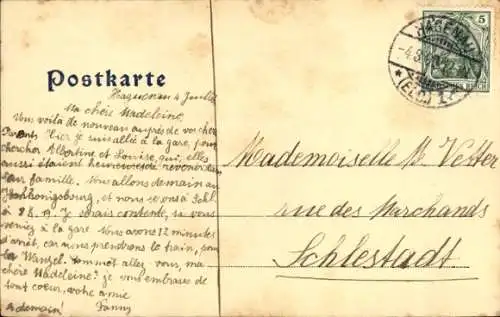 Postkarte
HAGENAU
(ELS.)
5
Haguenau 4 Juillet
Ma chère Madeleine,
Vous voilà de nouveau auprès de vos chers
Parents. Hier je suis allée à la gare, pour
chercher Albertine et Louise, qui, elles
aussi étaient heureuses de revenir dans
leur famille. Nous allons demain au
Hohkönigsbourg, et nous serons à Schl.
à 8 h. 19. Je serais contente, si vous
veniez à la gare. Nous avons 12 minutes
d'arrêt, car nous prendrons le train, pour
la Wanzel. Comment allez-vous, ma
chère Madeleine? je vous embrasse de
tout coeur, votre amie
Fanny
A demain!
Mademoiselle M. Vetter
rue des Marchands
Schlestadt